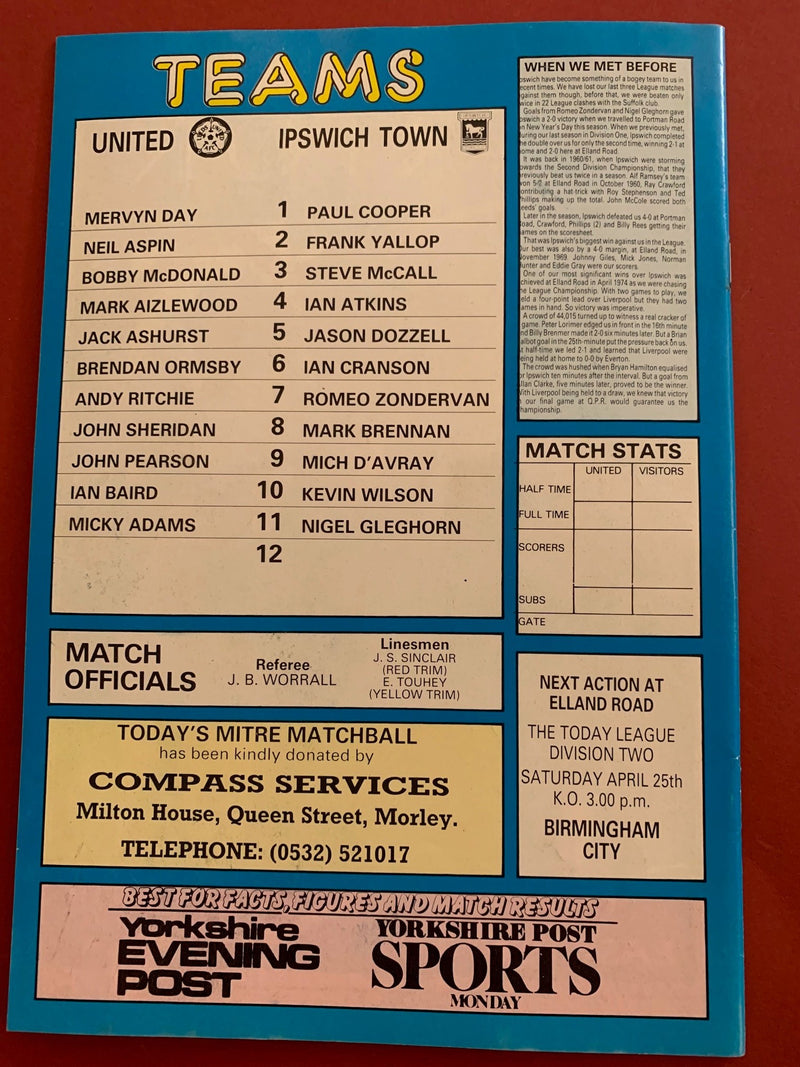 TEAMS
UNITED IPSWICH TOWN
MERVYN DAY 1 PAUL COOPER
NEIL ASPIN 2 FRANK YALLOP
BOBBY McDONALD 3 STEVE McCALL
MARK AIZLEWOOD 4 IAN ATKINS
JACK ASHURST 5 JASON DOZZELL
BRENDAN ORMSBY 6 IAN CRANSON
ANDY RITCHIE 7 ROMEO ZONDERVAN
JOHN SHERIDAN 8 MARK BRENNAN
JOHN PEARSON 9 MICH D'AVRAY
IAN BAIRD 10 KEVIN WILSON
MICKY ADAMS 11 NIGEL GLEGHORN
12
MATCH
OFFICIALS
Referee
J. B. WORRALL
Linesmen
J. S. SINCLAIR
(RED TRIM)
E. TOUHEY
(YELLOW TRIM)
TODAY'S MITRE MATCHBALL
has been kindly donated by
COMPASS SERVICES
Milton House, Queen Street, Morley.
TELEPHONE: (0532) 521017
WHEN WE MET BEFORE
pswich have become something of a bogey team to us in
ecent times. We have lost our last three League matches
gainst them though, before that, we were beaten only
wice in 22 League clashes with the Suffolk club.
Goals from Romeo Zondervan and Nigel Gleghorn gave
pswich a 2-0 victory when we travelled to Portman Road
n New Year's Day this season. When we previously met,
uring our last season in Division One, Ipswich completed
he double over us for only the second time, winning 2-1 at
ome and 2-0 here at Elland Road.
It was back in 1960/61, when Ipswich were storming
owards the Second Division Championship, that they
reviously beat us twice in a season. Alf Ramsey's team
von 5-2 at Elland Road in October 1960, Ray Crawford
ontributing a hat-trick with Roy Stephenson and Ted
hillips making up the total. John McCole scored both
eeds' goals.
Later in the season, Ipswich defeated us 4-0 at Portman
oad, Crawford, Phillips (2) and Billy Rees getting their
ames on the scoresheet.
That was Ipswich's biggest win against us in the League.
ur best was also by a 4-0 margin, at Elland Road, in
November 1969. Johnny Giles, Mick Jones, Norman
unter and Eddie Gray were our scorers.
One of our most significant wins over Ipswich was
chieved at Elland Road in April 1974 as we were chasing
he League Championship. With two games to play, we
eld a four-point lead over Liverpool but they had two
ames in hand. So victory was imperative.
A crowd of 44,015 turned up to witness a real cracker of
game. Peter Lorimer edged us in front in the 16th minute
nd Billy Bremner made it 2-0 six minutes later. But a Brian
albot goal in the 25th-minute put the pressure back on us.
t half-time we led 2-1 and learned that Liverpool were
eing held at home to 0-0 by Everton.
The crowd was hushed when Bryan Hamilton equalised
or Ipswich ten minutes after the interval. But a goal from
llan Clarke, five minutes later, proved to be the winner.
With Liverpool being held to a draw, we knew that victory
our final game at Q.P.R. would guarantee us the
hampionship.
MATCH STATS
UNITED VISITORS
HALF TIME
FULL TIME
SCORERS
SUBS
GATE
NEXT ACTION AT
ELLAND ROAD
THE TODAY LEAGUE
DIVISION TWO
SATURDAY APRIL 25th
K.O. 3.00 p.m.
BIRMINGHAM
CITY
BEST FOR FACTS, FIGURES AND MATCH RESULTS
Yorkshire
EVENING
POST
YORKSHIRE POST
SPORTS
MONDAY